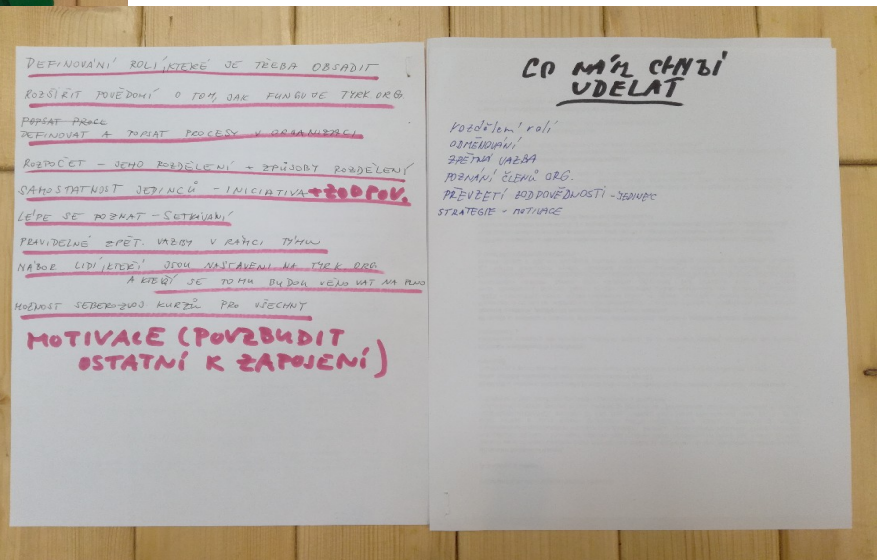 DEFINOVÁNÍ ROLÍ, KTERÉ JE TŘEBA OBSADIT
ROZŠÍŘIT POVĚDOMÍ O TOM, JAK FUNGUJE TYRK ORG.
POPSAT PROCE
DEFINOVAT A POPSAT PROCESY V ORGANIZACI
ROZPOČET - JEHO ROZDĚLENÍ + ZPŮSOBY ROZDĚLENÍ
SAMOSTATNOST JEDINCŮ - INICIATIVA + ZODPOV.
LÉPE SE POZNAT - SETKÁVÁNÍ
PRAVIDELNÉ ZPĚT. VAZBY V RÁMCI TÝMU
NÁBOR LIDÍ, KTEŘÍ JSOU NASTAVENI NA TYRK. ORG.
A KTEŘÍ SE TOMU BUDOU VĚNOVAT NA PLNO
MOŽNOST SEBEROZVOJ KURZŮ PRO VŠECHNY
MOTIVACE (POVZBUDIT
OSTATNÍ K ZAPOJENÍ)
CO NÁM CHYBÍ
UDĚLAT
ROZDĚLENÍ ROLÍ
ODMĚŇOVÁNÍ
ZPĚTNÁ VAZBA
POZNÁNÍ ČLENŮ ORG.
PŘEVZETÍ ZODPOVĚDNOSTI - JEDINEC
STRATEGIE - MOTIVACE